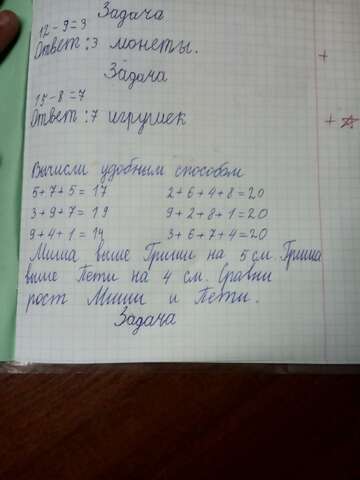 Задача
12-9=3
Ответ: 3 монеты.
Задача
15-8=7
Ответ: 7 игрушек
Вычисли удобным способом
5+7+5=17 2+6+4+8=20
3+9+7=19 9+2+8+1=20
9+4+1=14 3+6+7+4=20
Миша выше Гриши на 5 см. Гриша
выше Пети на 4 см. Сравни
рост Миши и Пети.
Задача
+
+